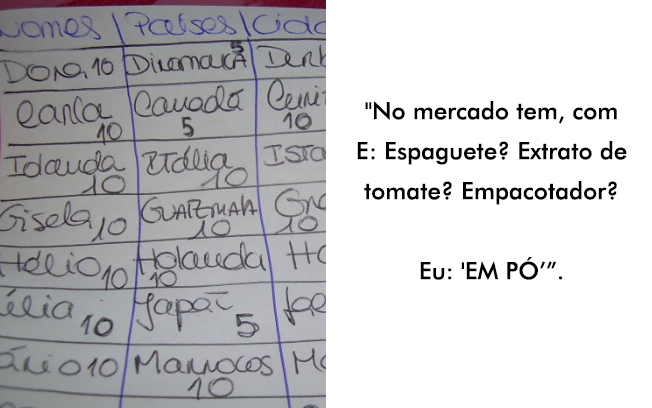 Nomes | Países | Cida
Dona 10 Dinamarca 5 Den
Carla 10 Canadá 5 10
Iolanda 10 Itália 10 Ista
Gisela 10 GUATEMALA 10 10
Hélio 10 Holanda 10 Ho
élia 10 Japão 5
ário 10 Marrocos 10 Ma
"No mercado tem, com
E: Espaguete? Extrato de
tomate? Empacotador?
Eu: 'EM PÓ'”.